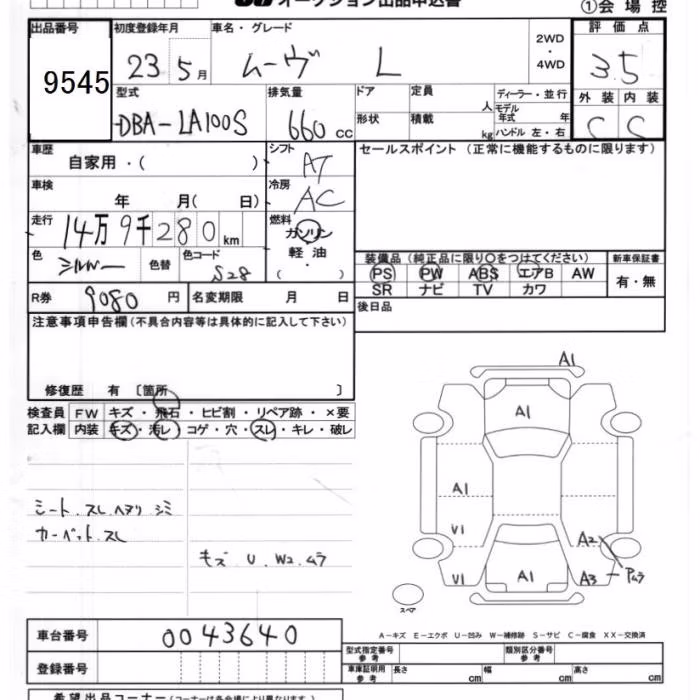 オークション出品申込書
①会場控
出品番号 初度登録年月 車名・グレード 評価点
9545 23 5月 ムーヴ L 2WD・4WD 3.5
型式 排気量 ドア 定員 人 ディーラー・並行 外装 内装
DBA-LA100S 660cc 形状 積載 kg モデル年式 年 ハンドル 左・右 C C
車歴 シフト セールスポイント (正常に機能するものに限ります)
自家用・( ) AT
車検 冷房
年 月( 日) AC
走行 燃料
14万9千280km ガソリン
軽油
( ・ )
色 シルバー 色替 色コード S28
装備品 (純正品に限り○をつけてください) 新車保証書
PS PW ABS エアB AW 有・無
SR ナビ TV カワ
R券 9080円 名変期限 月 日
後日品
注意事項申告欄(不具合内容等は具体的に記入して下さい)
修復歴 有 〔箇所 〕
検査員 FW キズ・飛石・ヒビ割・リペア跡・×要
記入欄 内装 キズ・汚レ・コゲ・穴・スレ・キレ・破レ
シート.スレ ヘタリ シミ
カーペット.スレ
キズ U . W2 . ムラ
A1
A1
A1
V1
A2
V1
A1
A3 - Pムラ
スペア
A-キズ E-エクボ U-凹み W-補修跡 S-サビ C-腐食 XX-交換済
車台番号 0043640
登録番号
型式指定番号 参考 類別区分番号 参考
車庫証明用 参考 長さ cm 幅 cm 高さ cm
希望出品コーナー(コーナーは各会場により異なります)